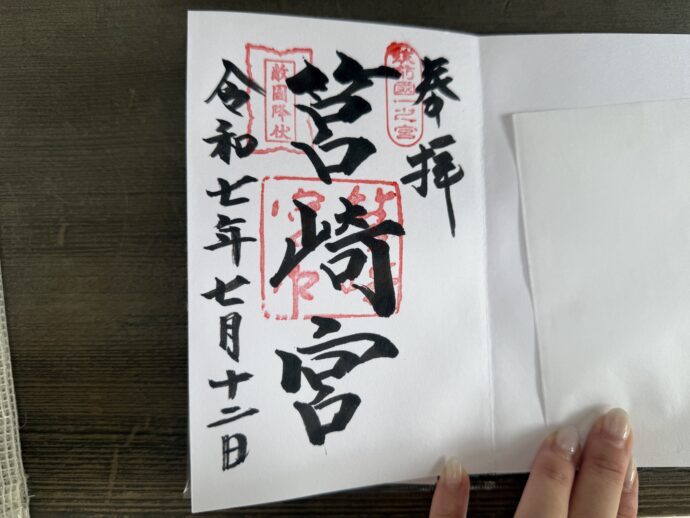 奉拝
筑前國一之宮
筥崎宮
敵國降伏
令和七年七月十二日